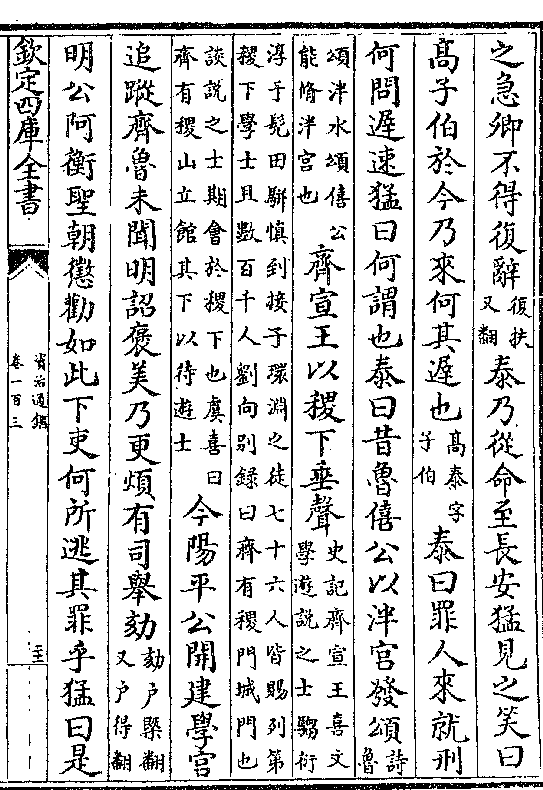 之急卿不得復辭復扶又翻泰乃從命至長安猛見之笑曰
髙子伯於今乃來何其遲也髙泰字子伯泰曰罪人來就刑
何問遲速猛曰何謂也泰曰昔魯僖公以泮宫發頌詩魯
頌泮水頌僖公能脩泮宮也齊宣王以稷下垂聲史記齊宣王喜文學遊說之士騶衍
淳于髡田駢愼到接子環淵之徒七十六人皆賜列第稷下學士且數百千人劉向别録曰齊有稷門城門也
談說之士期會於稷下也虞喜曰齊有稷山立館其下以待遊士今陽平公開建學宫
追蹤齊魯未聞明詔褒美乃更煩有司舉劾劾户槩翻又户得翻
明公阿衡聖朝懲勸如此下吏何所逃其罪乎猛曰是
欽定四庫全書
資治通鑑
卷一百三
二十二